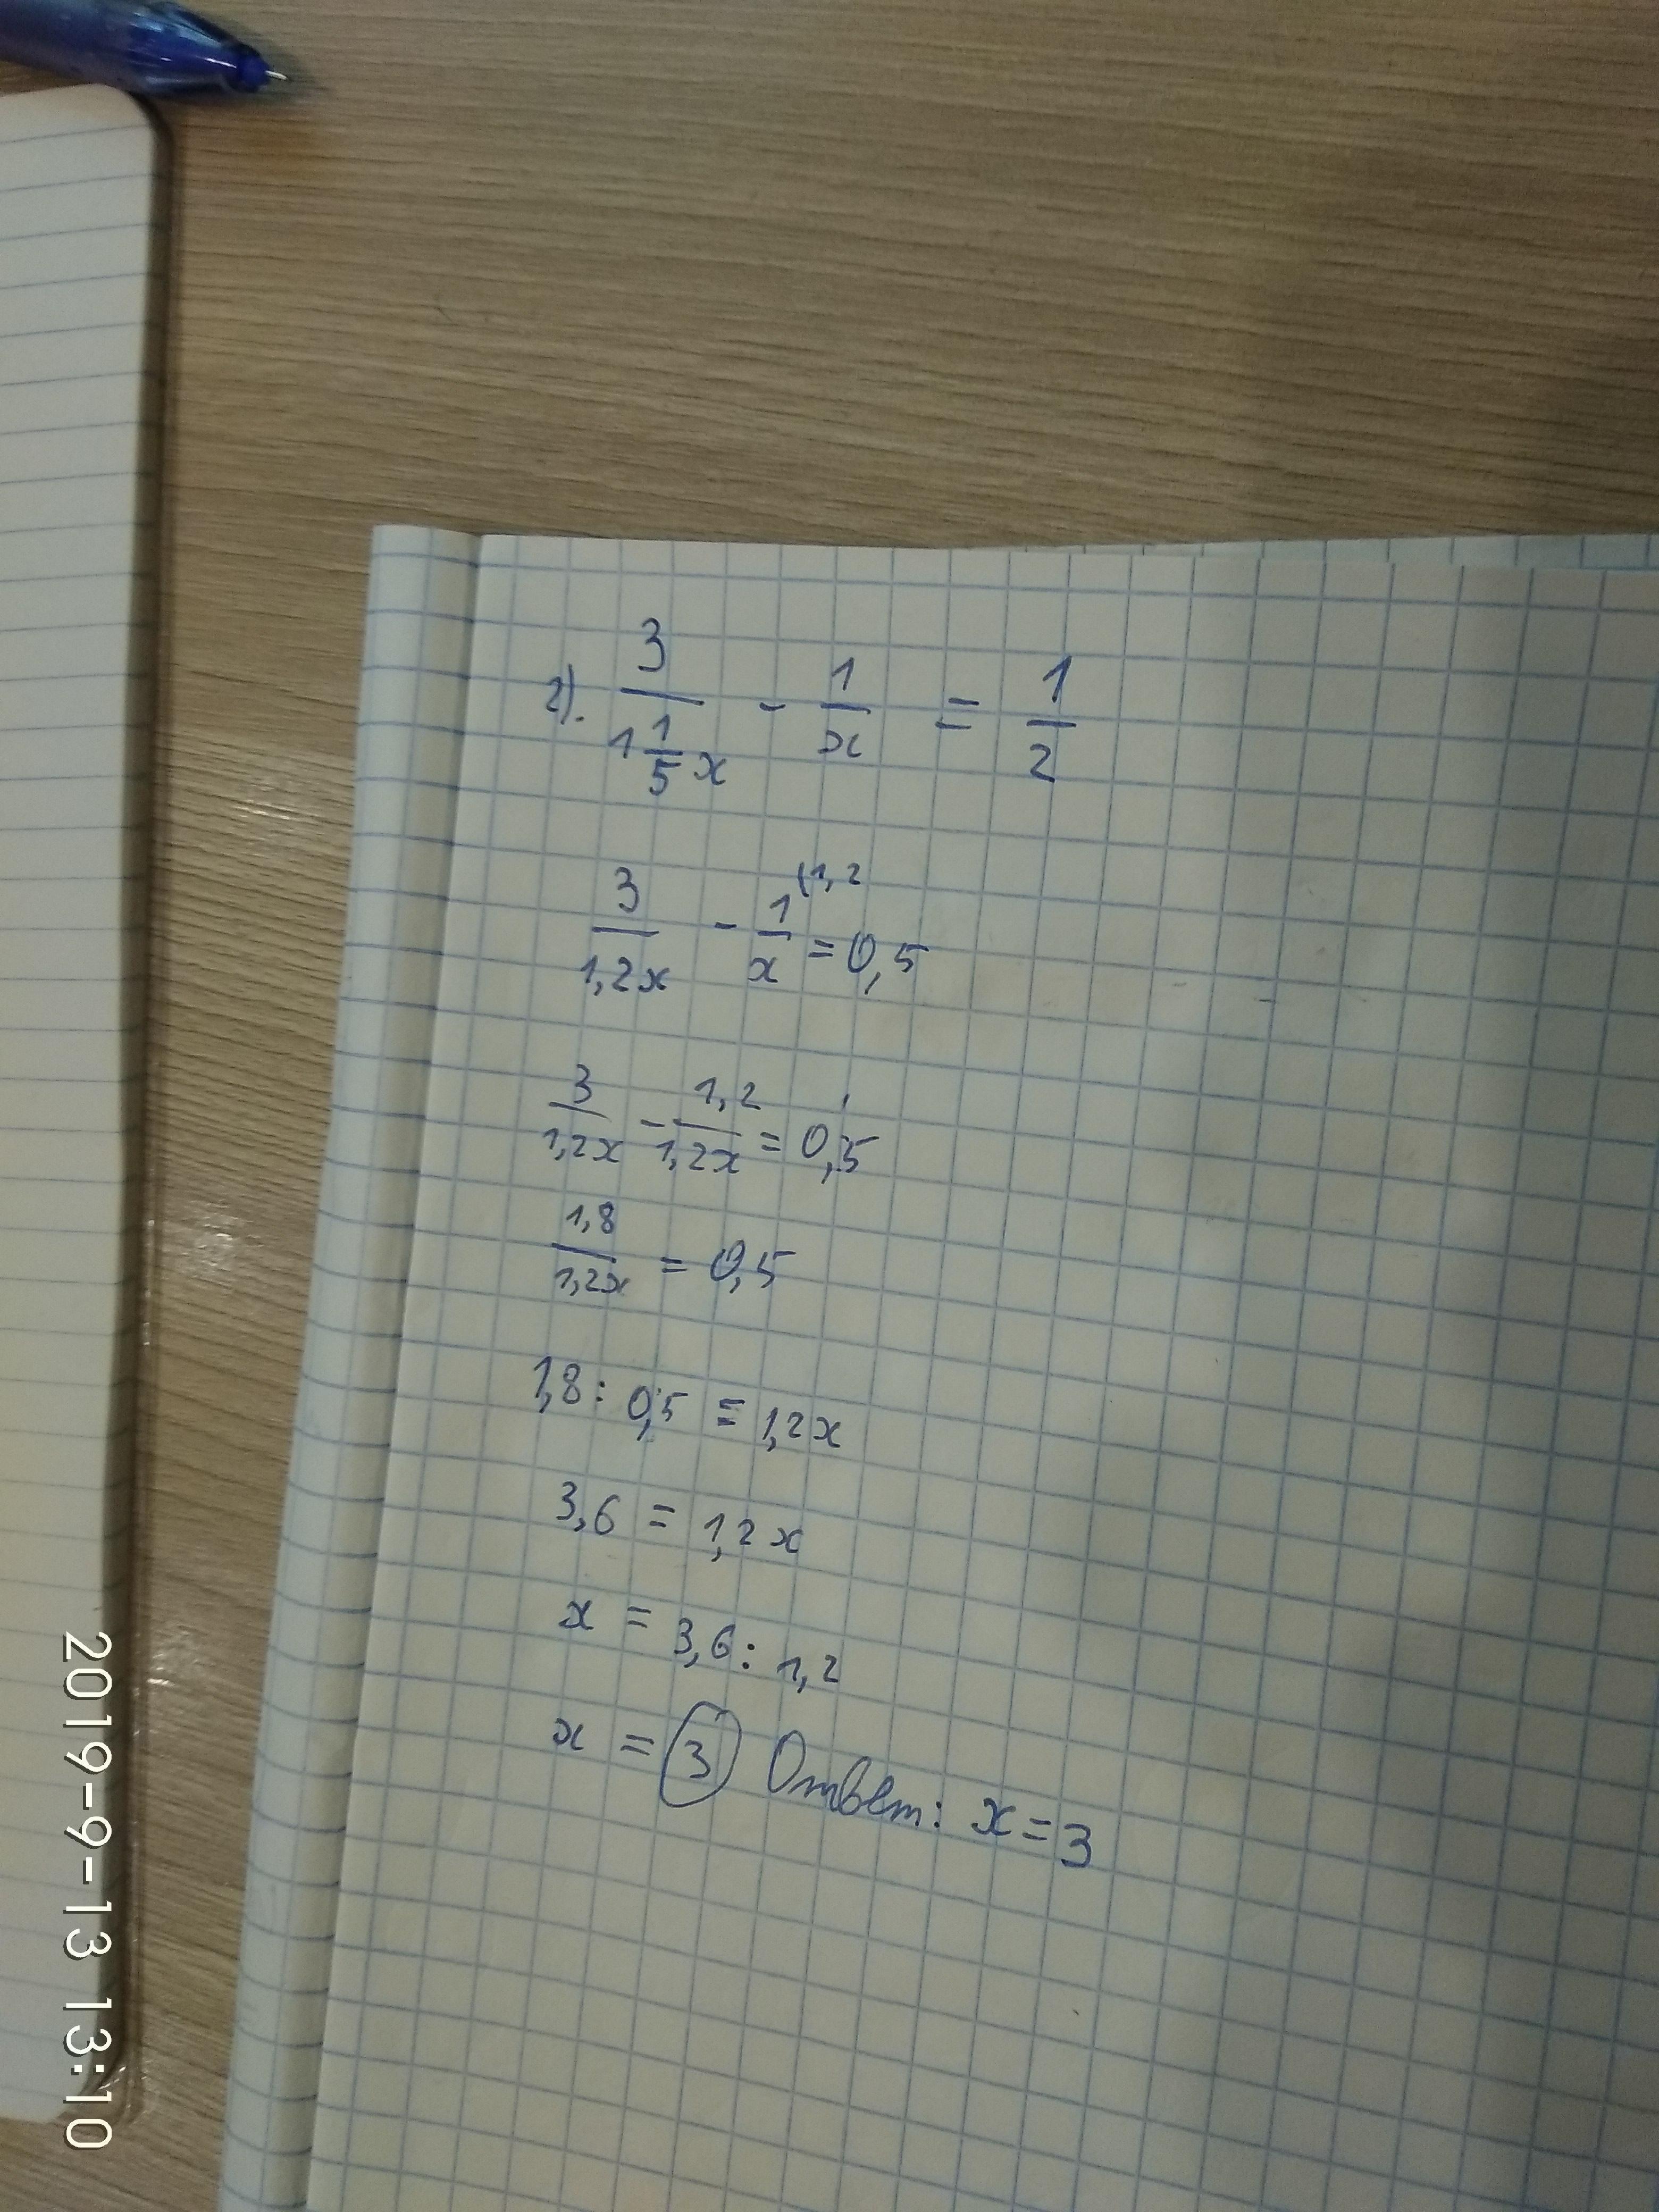 2). 3/(1 1/5 x) - 1/x = 1/2
3/(1,2x) - 1/x (1,2 = 0,5
3/(1,2x) - 1,2/(1,2x) = 0,5
1,8/(1,2x) = 0,5
1,8 : 0,5 = 1,2x
3,6 = 1,2x
x = 3,6 : 1,2
x = 3 Ответ: x = 3
2019-9-13 13:10